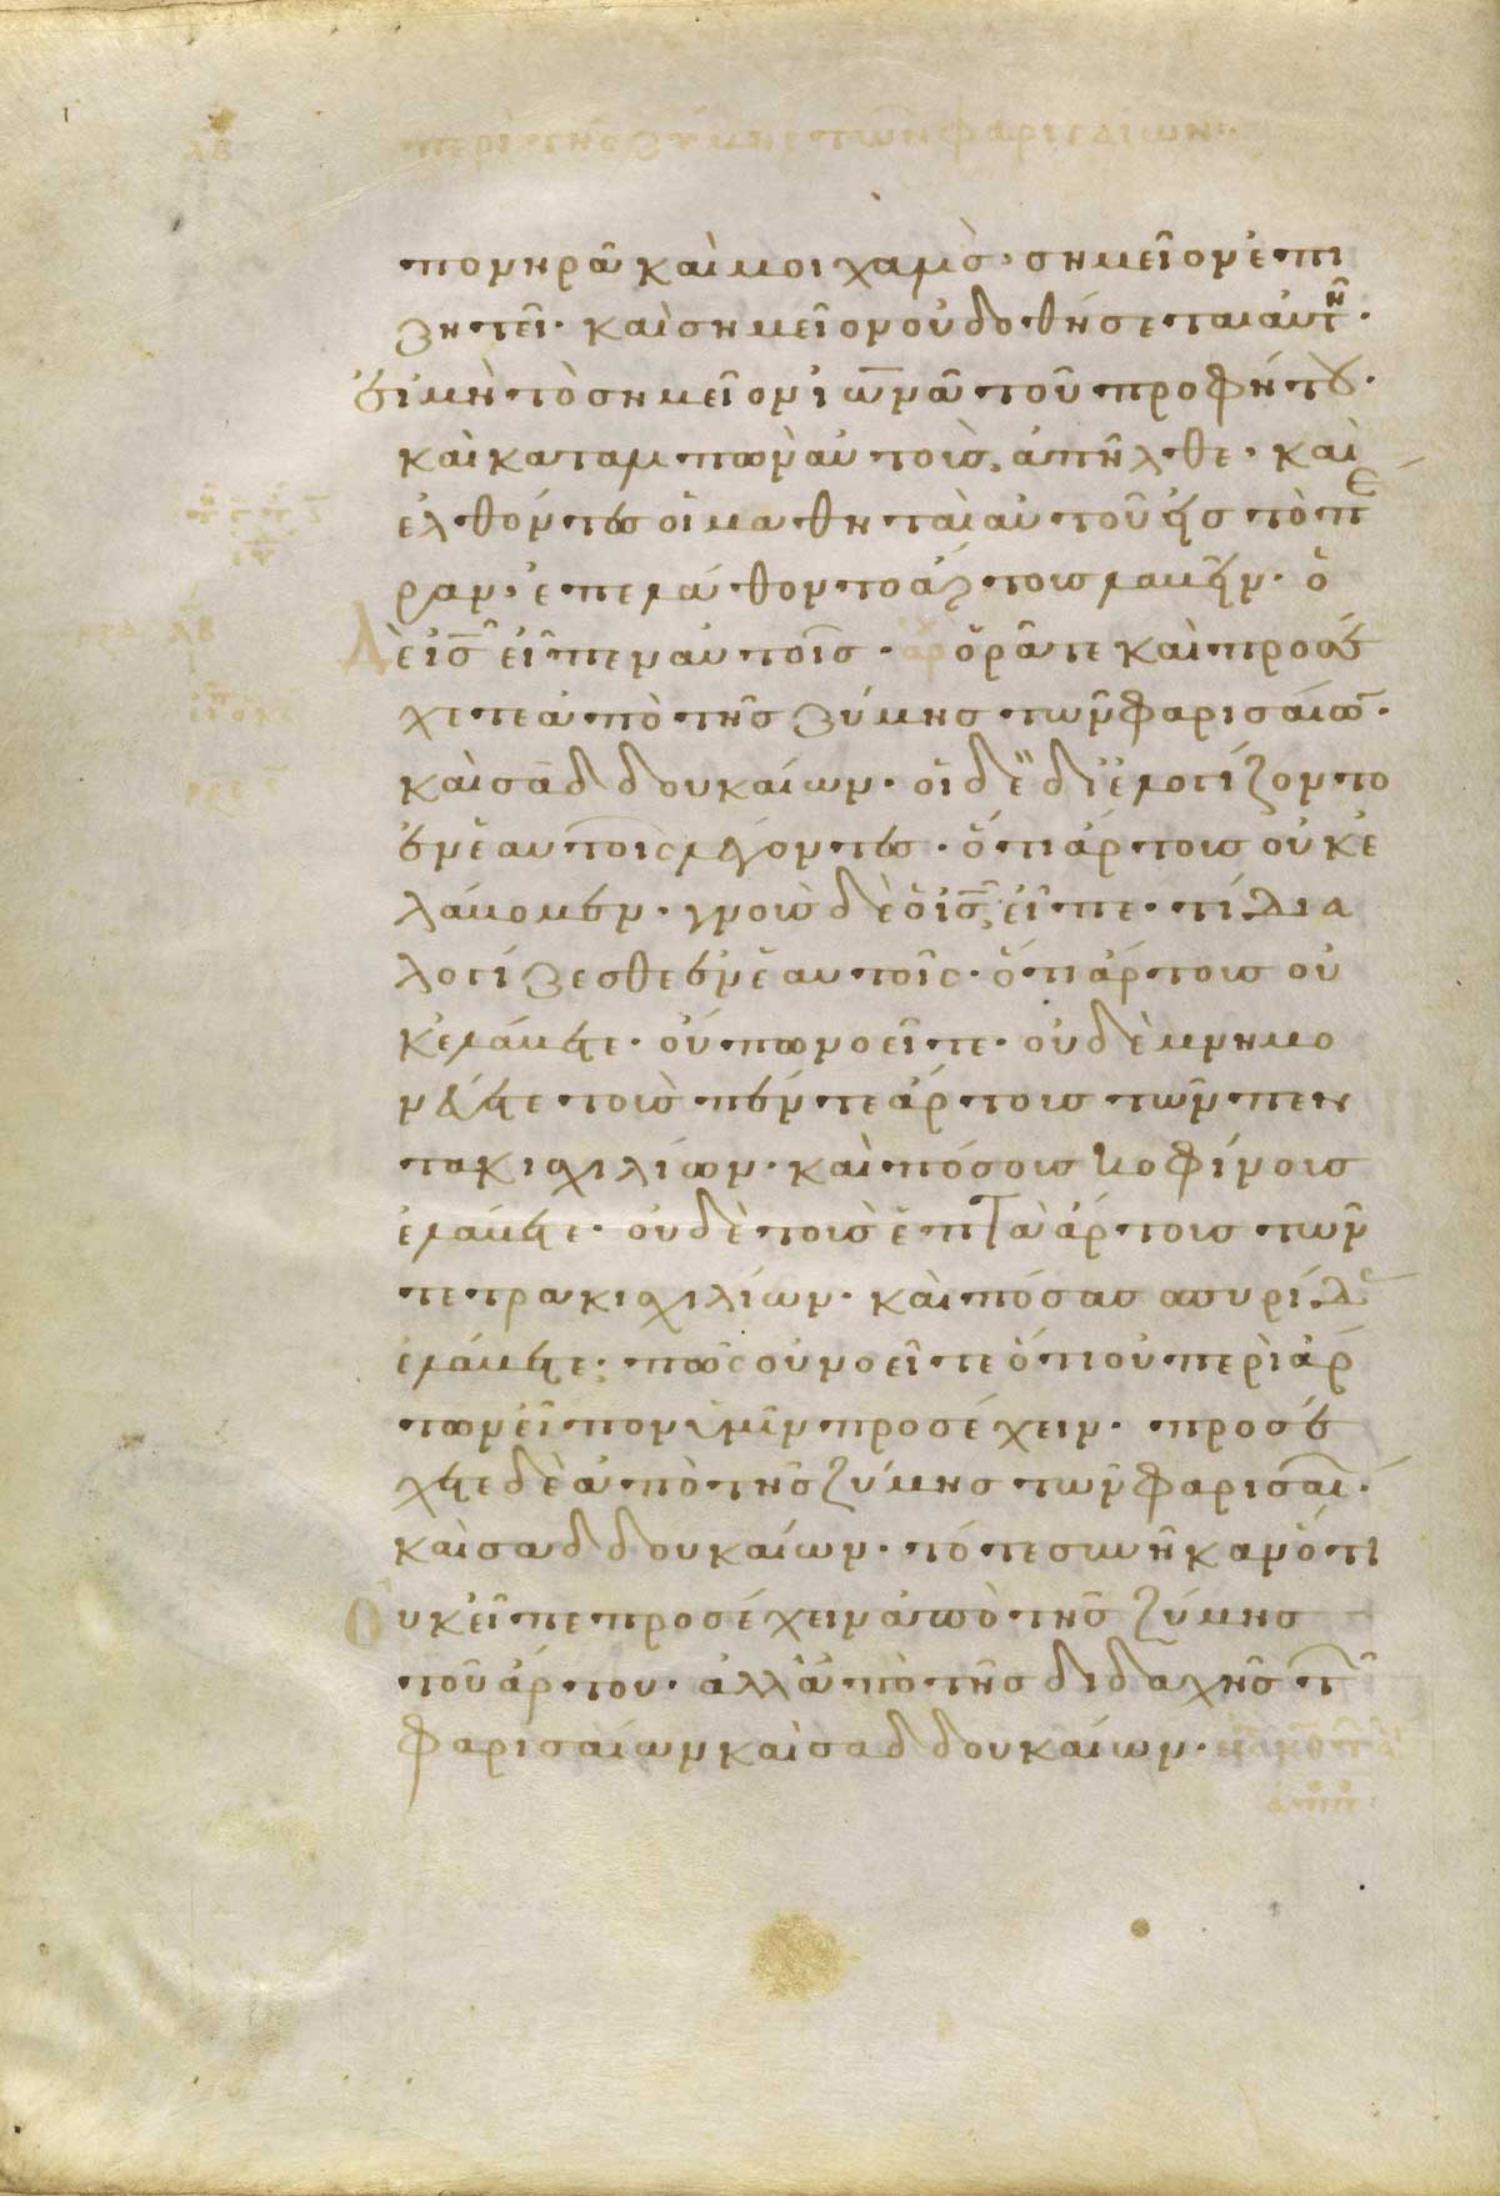 περὶ τῆς ζύμης τῶν φαρισαίων
λβ
πονηρὰ καὶ μοιχαλὶς· σημεῖον ἐπι
ζητεῖ· καὶ σημεῖον οὐ δοθήσεται αὐτῆ·
εἰ μὴ τὸ σημεῖον ἰωνᾶ τοῦ προφήτου·
καὶ καταλιπὼν αὐτοὺς, ἀπῆλθε· καὶ
ἐλθόντες οἱ μαθηταὶ αὐτοῦ εἰς τὸ πέ
ραν, ἐπελάθοντο ἄρτους λαβεῖν· ὁ
δὲ ις εἶπεν αὐτοῖς· ὁρᾶτε καὶ προσέ
χετε ἀπὸ τῆς ζύμης τῶν φαρισαίων·
καὶ σαδδουκαίων· οἱ δὲ διελογίζοντο
ἐν ἑαυτοῖς λέγοντες· ὅτι ἄρτους οὐκ ἐ
λάβομεν· γνοὺς δὲ ὁ ις, εἶπε· τί δια
λογίζεσθε ἐν ἑαυτοῖς· ὅτι ἄρτους οὐ
κ ἐλάβετε· οὔπω νοεῖτε· οὐδὲ μνημο
νεύετε τοὺς πέντε ἄρτους τῶν πεν
τακισχιλίων· καὶ πόσους κοφίνους
ἐλάβετε· οὐδὲ τοὺς ἑπτὰ ἄρτους τῶν
τετρακισχιλίων· καὶ πόσας σπυρίδας
ἐλάβετε; πῶς οὐ νοεῖτε ὅτι οὐ περὶ ἄρ
των εἶπον ὑμῖν προσέχειν· προσέ
χετε δὲ ἀπὸ τῆς ζύμης τῶν φαρισαί·
καὶ σαδδουκαίων· τότε συνῆκαν ὅτι
οὐκ εἶπε προσέχειν ἀπὸ τῆς ζύμης
τοῦ ἄρτου· ἀλλ' ἀπὸ τῆς διδαχῆς τῶν
φαρισαίων καὶ σαδδουκαίων·